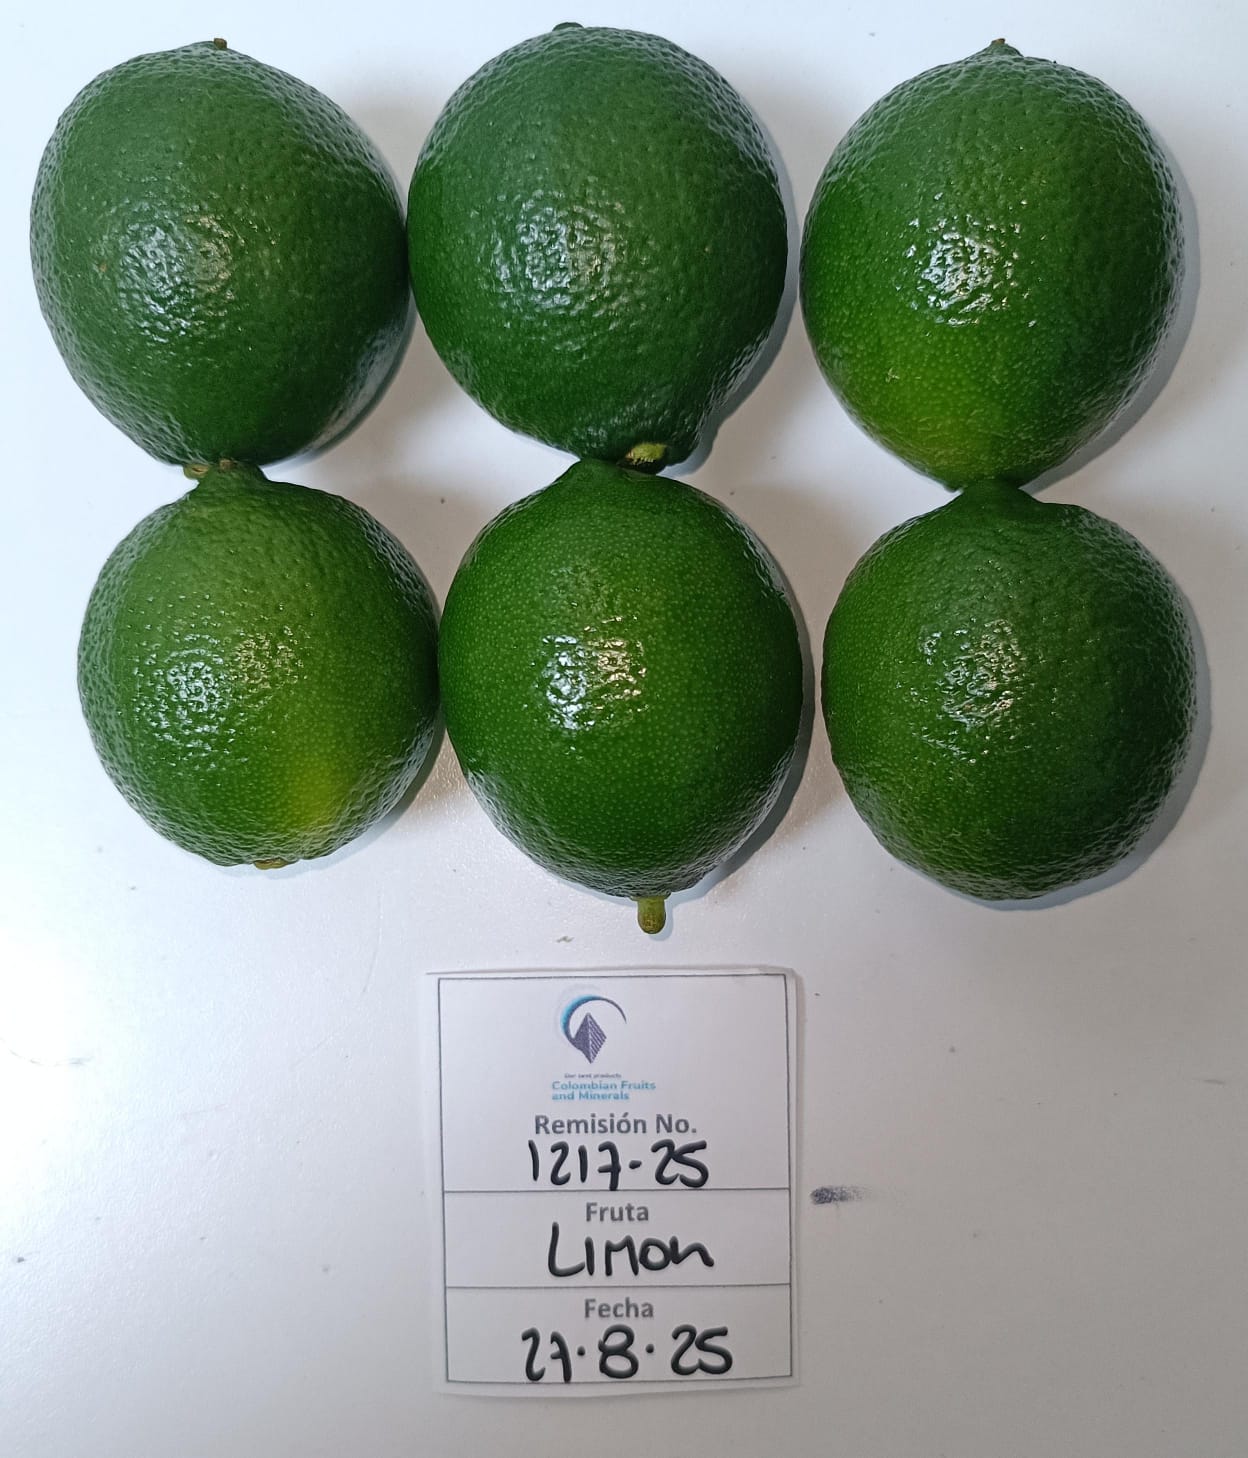 Our best products
Colombian Fruits
and Minerals
Remisión No.
1217-25
Fruta
LIMON
Fecha
27·8·25